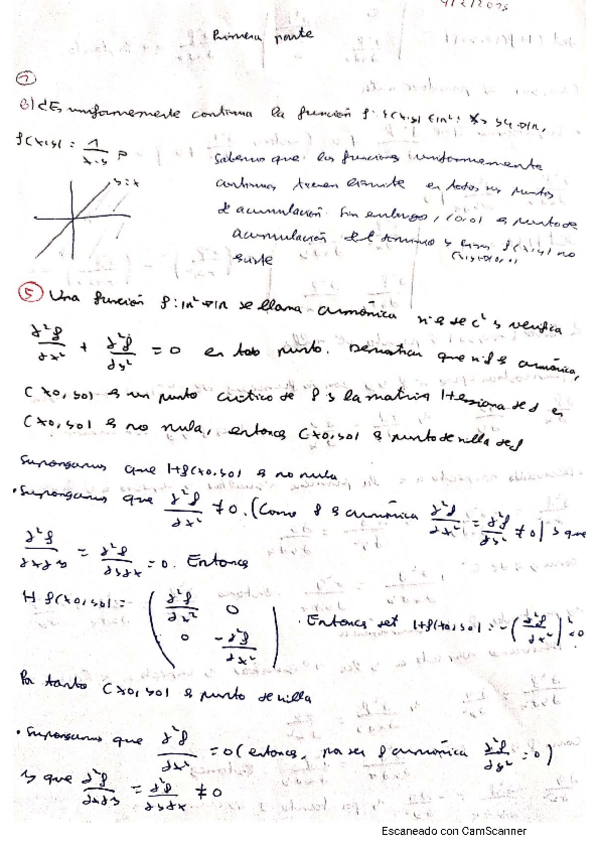 4/2/2015
Primera parte
1
B) ¿Es uniformemente continua la función f: {(x,y) ∈ R²: x > y} → R,
f(x,y) = 1/(x-y) ?
y=x
Sabemos que las funciones uniformemente
continuas tienen límite en todos sus puntos
de acumulación. Sin embargo, (0,0) es punto de
acumulación del dominio y f(x,y) no
(x,y)→(0,0)
existe
5 Una función f: R² → R se llama armónica si es de C² y verifica
∂²f/∂x² + ∂²f/∂y² = 0 en todo punto. Demostrar que si f es armónica,
(x0,y0) es un punto crítico de f y la matriz Hessiana de f en
(x0,y0) es no nula, entonces (x0,y0) es punto de silla de f
Supongamos que Hf(x0,y0) es no nula
• Supongamos que ∂²f/∂x² ≠ 0. (Como f es armónica ∂²f/∂x² = ∂²f/∂y² ≠ 0) y que
∂²f/∂x∂y = ∂²f/∂y∂x = 0. Entonces
Hf(x0,y0) = ( ∂²f/∂x² 0
0 -∂²f/∂x² ) . Entonces det Hf(x0,y0) = -(∂²f/∂x²)² < 0
Por tanto (x0,y0) es punto de silla
• Supongamos que ∂²f/∂x² = 0 (entonces, por ser f armónica ∂²f/∂y² = 0)
y que ∂²f/∂x∂y = ∂²f/∂y∂x ≠ 0
Escaneado con CamScanner